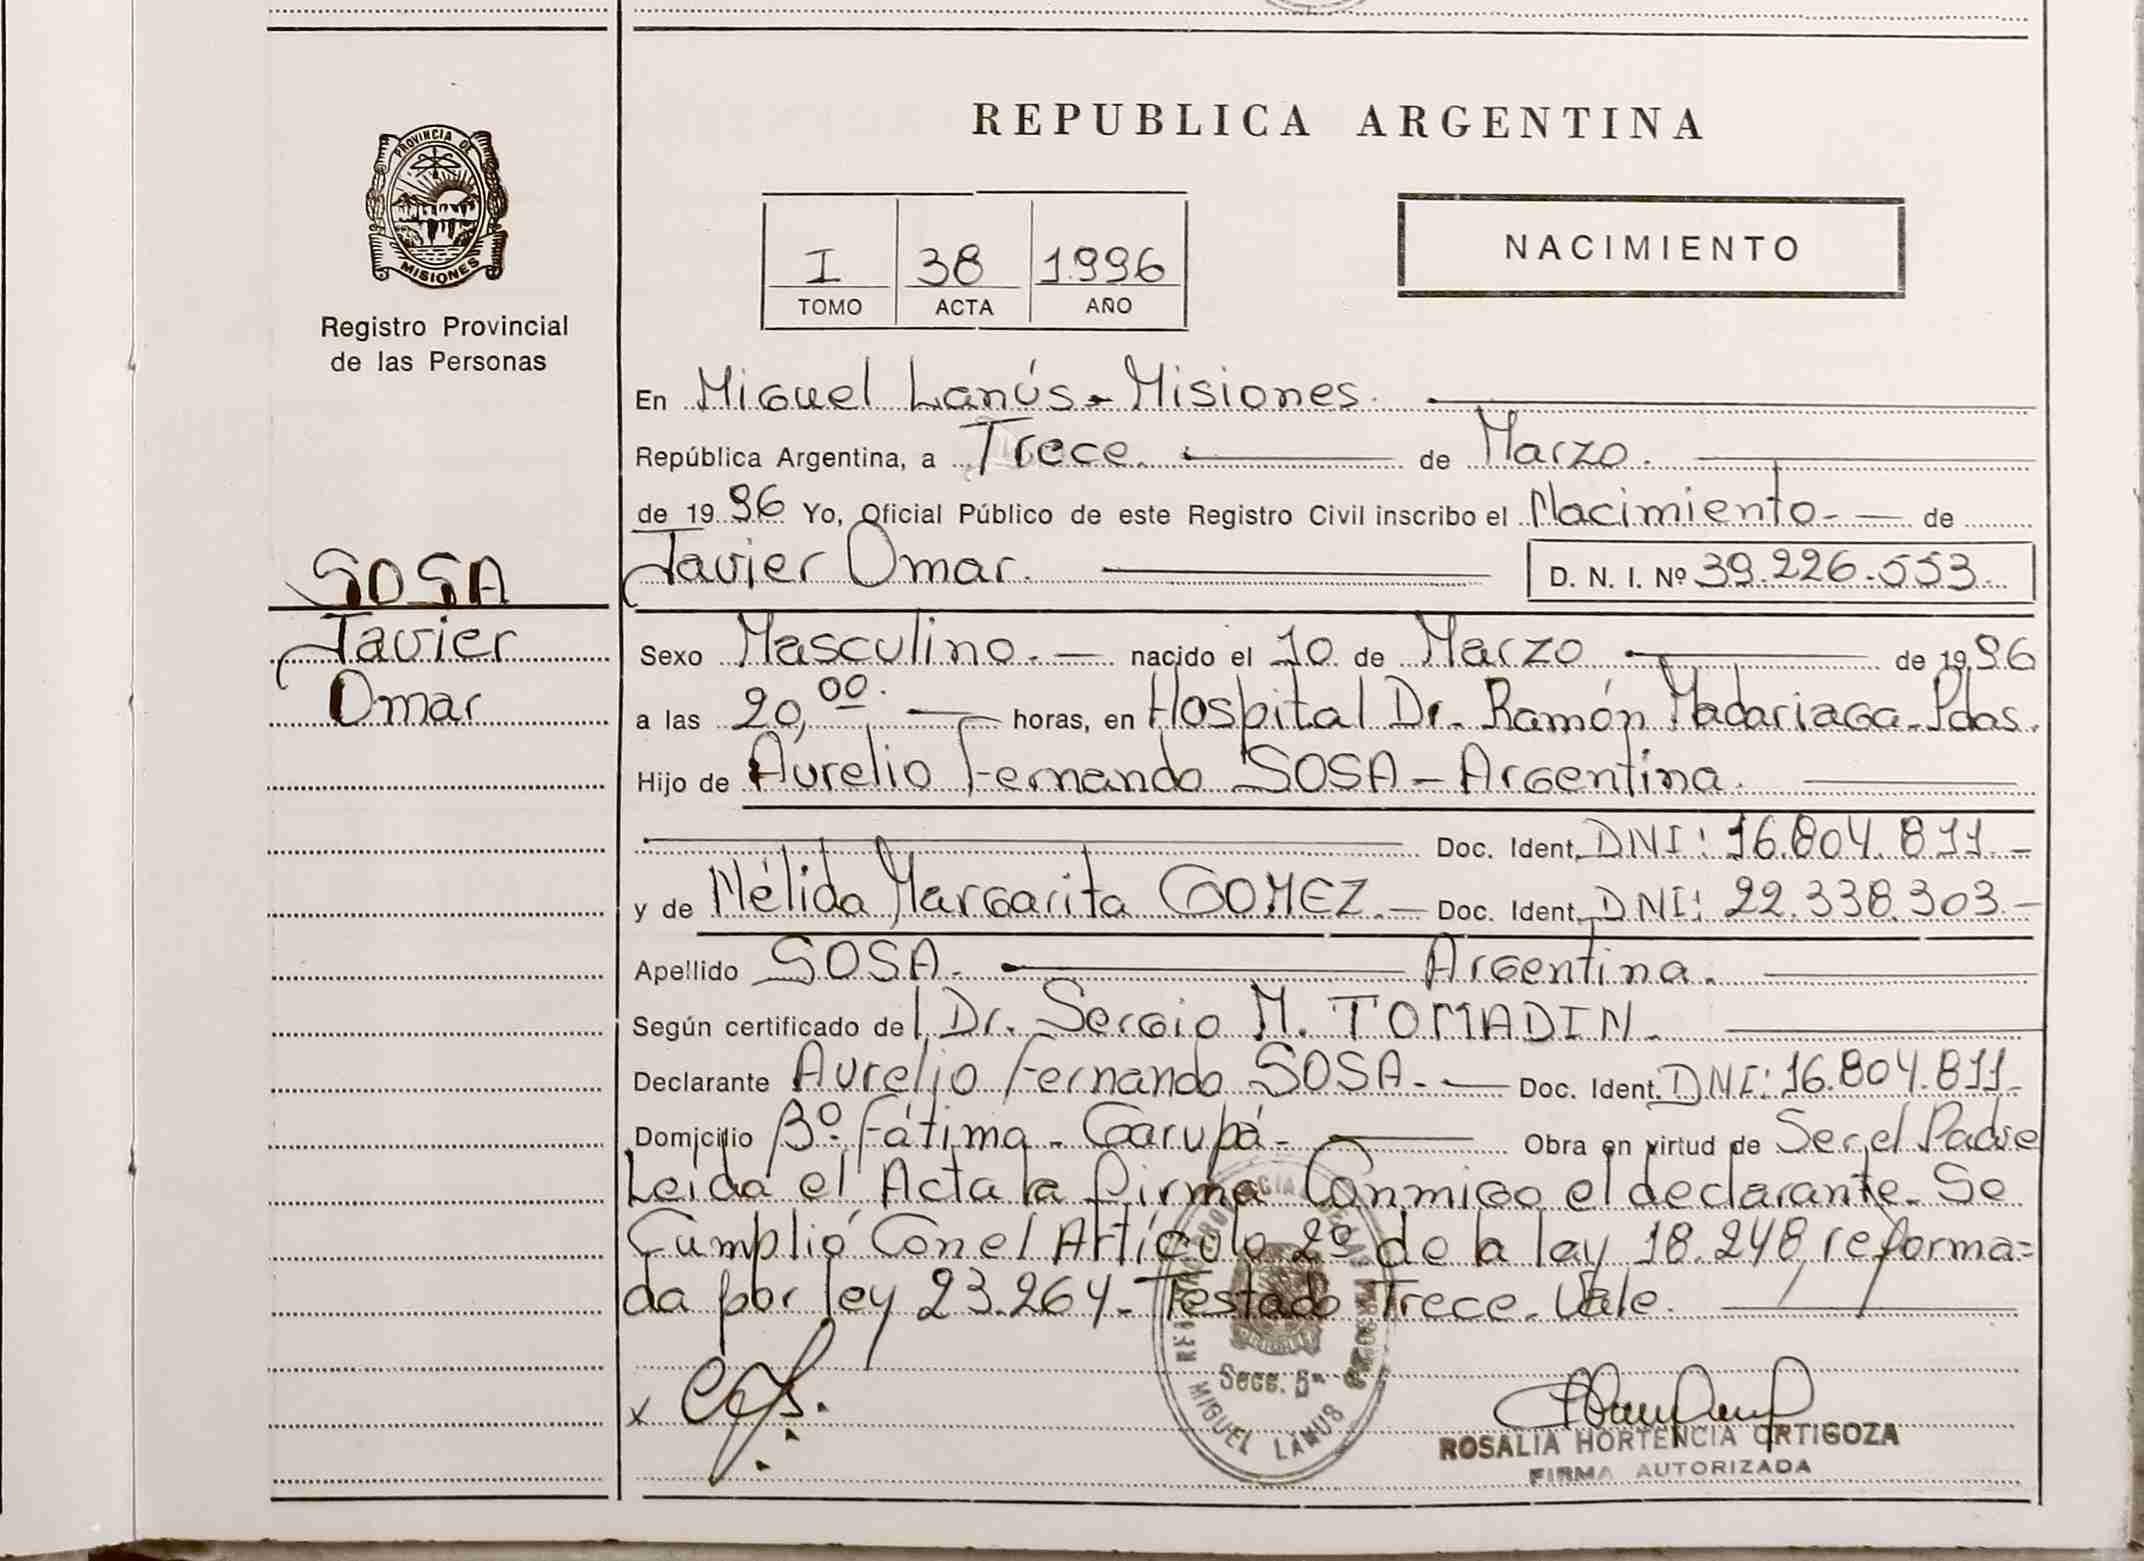 PROVINCIA DE
MISIONES
Registro Provincial
de las Personas
SOSA
Javier
Omar
REPUBLICA ARGENTINA
I 38 1996
TOMO ACTA AÑO
NACIMIENTO
En Miguel Lanús - Misiones.
República Argentina, a Trece. de Marzo.
de 1996 Yo, Oficial Público de este Registro Civil inscribo el Nacimiento - de
Javier Omar. D. N. I. Nº 39.226.553.
Sexo Masculino. - nacido el 10 de Marzo de 1996
a las 20,00. horas, en Hospital Dr. Ramón Madariaga - Pdas.
Hijo de Aurelio Fernando SOSA - Argentina.
Doc. Ident. DNI: 16.804.811. -
y de Nélida Margarita GOMEZ. - Doc. Ident. DNI: 22.338.303. -
Apellido SOSA. Argentina.
Según certificado del Dr. Sergio M. TOMADIN.
Declarante Aurelio Fernando SOSA. - Doc. Ident. DNI: 16.804.811.
Domicilio Bº. Fátima - Garupá - Obra en virtud de Ser el Padre
Leida el Acta la firma Conmigo el declarante. Se
Cumplió Con el Artículo 2º de la ley 18.248, reforma=
da por ley 23.264 - Testado Trece. Vale.
Secc. 5ª
MIGUEL LANUS
ROSALIA HORTENCIA ORTIGOZA
FIRMA AUTORIZADA